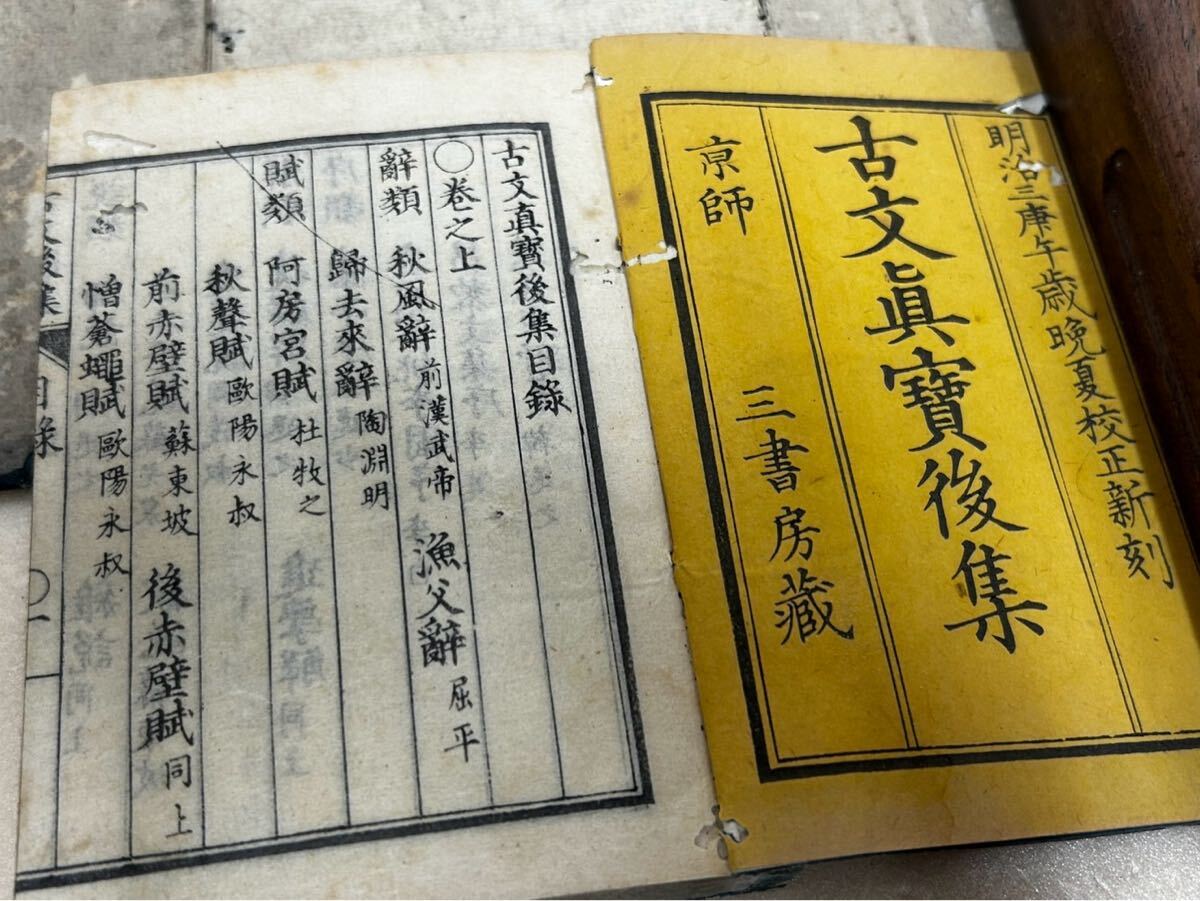 明治三庚午歳晩夏校正新刻
古文眞寶後集
京師 三書房藏
古文真寶後集目錄
〇卷之上
辭類 秋風辭 前漢武帝 漁父辭 屈平
歸去來辭 陶淵明
賦類 阿房宮賦 杜牧之
秋聲賦 歐陽永叔
前赤壁賦 蘇東坡 後赤壁賦 同上
憎蒼蠅賦 歐陽永叔
古文後集 目錄 〇一